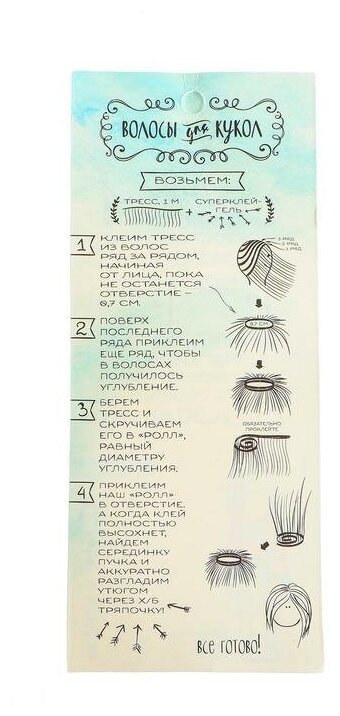 ВОЛОСЫ для КУКОЛ
ВОЗЬМЕМ:
ТРЕСС, 1 М + СУПЕРКЛЕЙ-
ГЕЛЬ
1 КЛЕИМ ТРЕСС
ИЗ ВОЛОС
РЯД ЗА РЯДОМ,
НАЧИНАЯ
ОТ ЛИЦА, ПОКА
НЕ ОСТАНЕТСЯ
ОТВЕРСТИЕ –
0,7 СМ.
3 РЯД
2 РЯД
1 РЯД
0,7 СМ
2 ПОВЕРХ
ПОСЛЕДНЕГО
РЯДА ПРИКЛЕИМ
ЕЩЕ РЯД, ЧТОБЫ
В ВОЛОСАХ
ПОЛУЧИЛОСЬ
УГЛУБЛЕНИЕ.
3 БЕРЕМ
ТРЕСС И
СКРУЧИВАЕМ
ЕГО В «РОЛЛ»,
РАВНЫЙ
ДИАМЕТРУ
УГЛУБЛЕНИЯ.
ОБЯЗАТЕЛЬНО
ПРОКЛЕЙТЕ
4 ПРИКЛЕИМ
НАШ «РОЛЛ»
В ОТВЕРСТИЕ.
А КОГДА КЛЕЙ
ПОЛНОСТЬЮ
ВЫСОХНЕТ,
НАЙДЕМ
СЕРЕДИНКУ
ПУЧКА И
АККУРАТНО
РАЗГЛАДИМ
УТЮГОМ
ЧЕРЕЗ Х/Б
ТРЯПОЧКУ!
ВСЕ ГОТОВО!